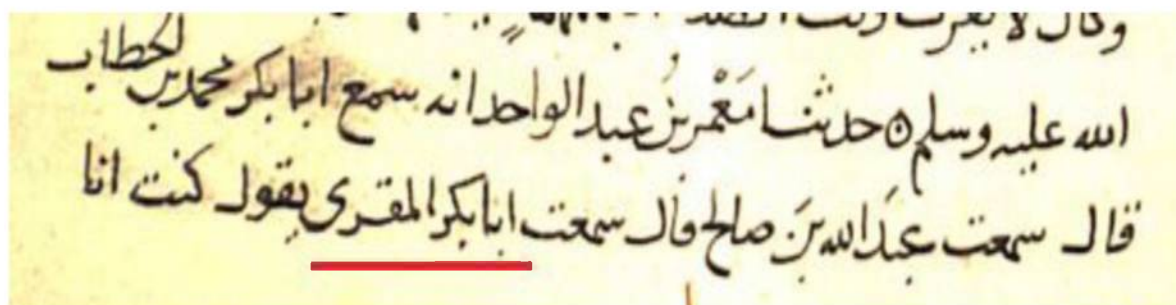 وكان لا يعرف
الله عليه وسلم ه حدثنا مَعْمر بنُ عبد الواحد انه سمع ابا بكر محمد بن الخطاب
قال سمعت عبدَ الله بنَ صالح قال سمعت ابا بكر المقرى يقول كنت انا